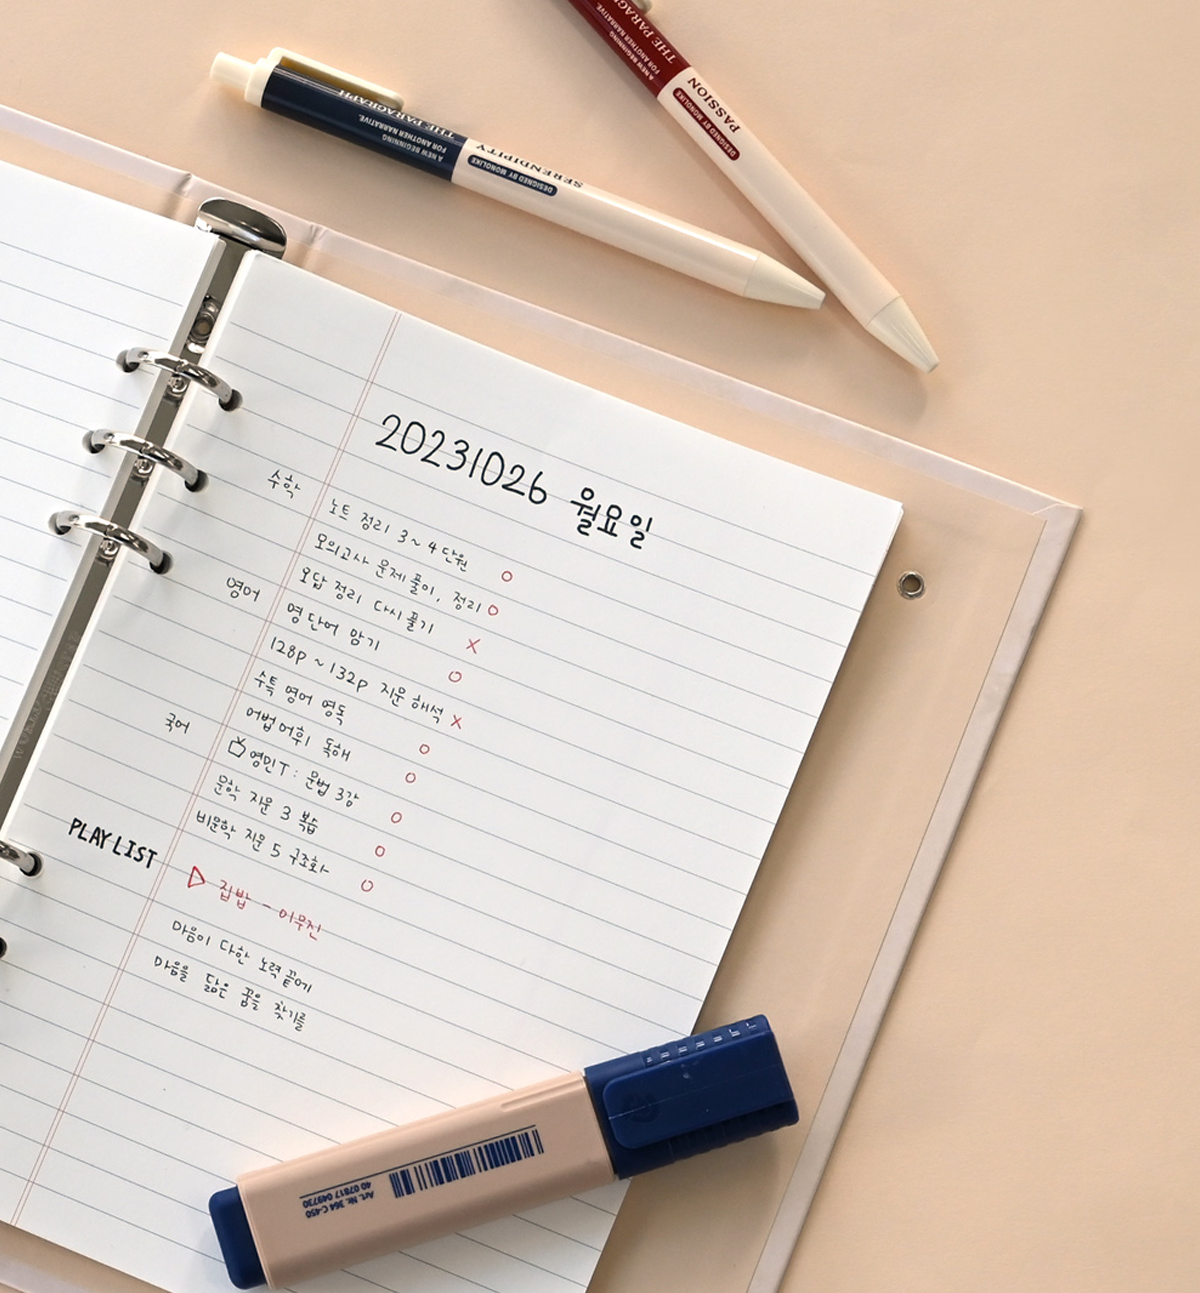 THE PARAGRAPH
A NEW BEGINNING
FOR ANOTHER NARRATIVE.
SERENDIPITY
DESIGNED BY MONOLIKE
THE PARAGRAPH
A NEW BEGINNING
FOR ANOTHER NARRATIVE.
PASSION
DESIGNED BY MONOLIKE
20231026 월요일
수학
노트 정리 3~4단원 O
모의고사 문제 풀이, 정리 O
오답 정리 다시 풀기 X
영어
영단어 암기 O
128p ~ 132p 지문 해석 X
수특 영어 영독 O
어법 어휘 독해 O
국어
영민T : 문법 3강 O
문학 지문 3 복습 O
비문학 지문 5 구조화 O
PLAYLIST
▷ 집밥 - 이무진
마음이 다한 노력 끝에
마음을 닮은 꿈을 찾기를
Art. Nr. 364 C-450
40 07817 049730